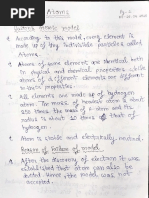 Atoms
Dalton's atomic model
1. According to this model, every element is
made up of tiny indivisible particles called
Atoms.
2. Atoms of same element are identical both
in physical and chemical properties, while
atoms of different elements are different
in their properties.
3. All elements are made up of hydrogen
atom. The mass of heaviest atom is
about 250 times the mass of hydrogen
atom and
radius is about 10 times that of
hydrogen.
4. Atom is stable and electrically neutral.
Reason of failure of model
After the discovery of electron it was
established that atom can also be
, hence the model was not
accepted.